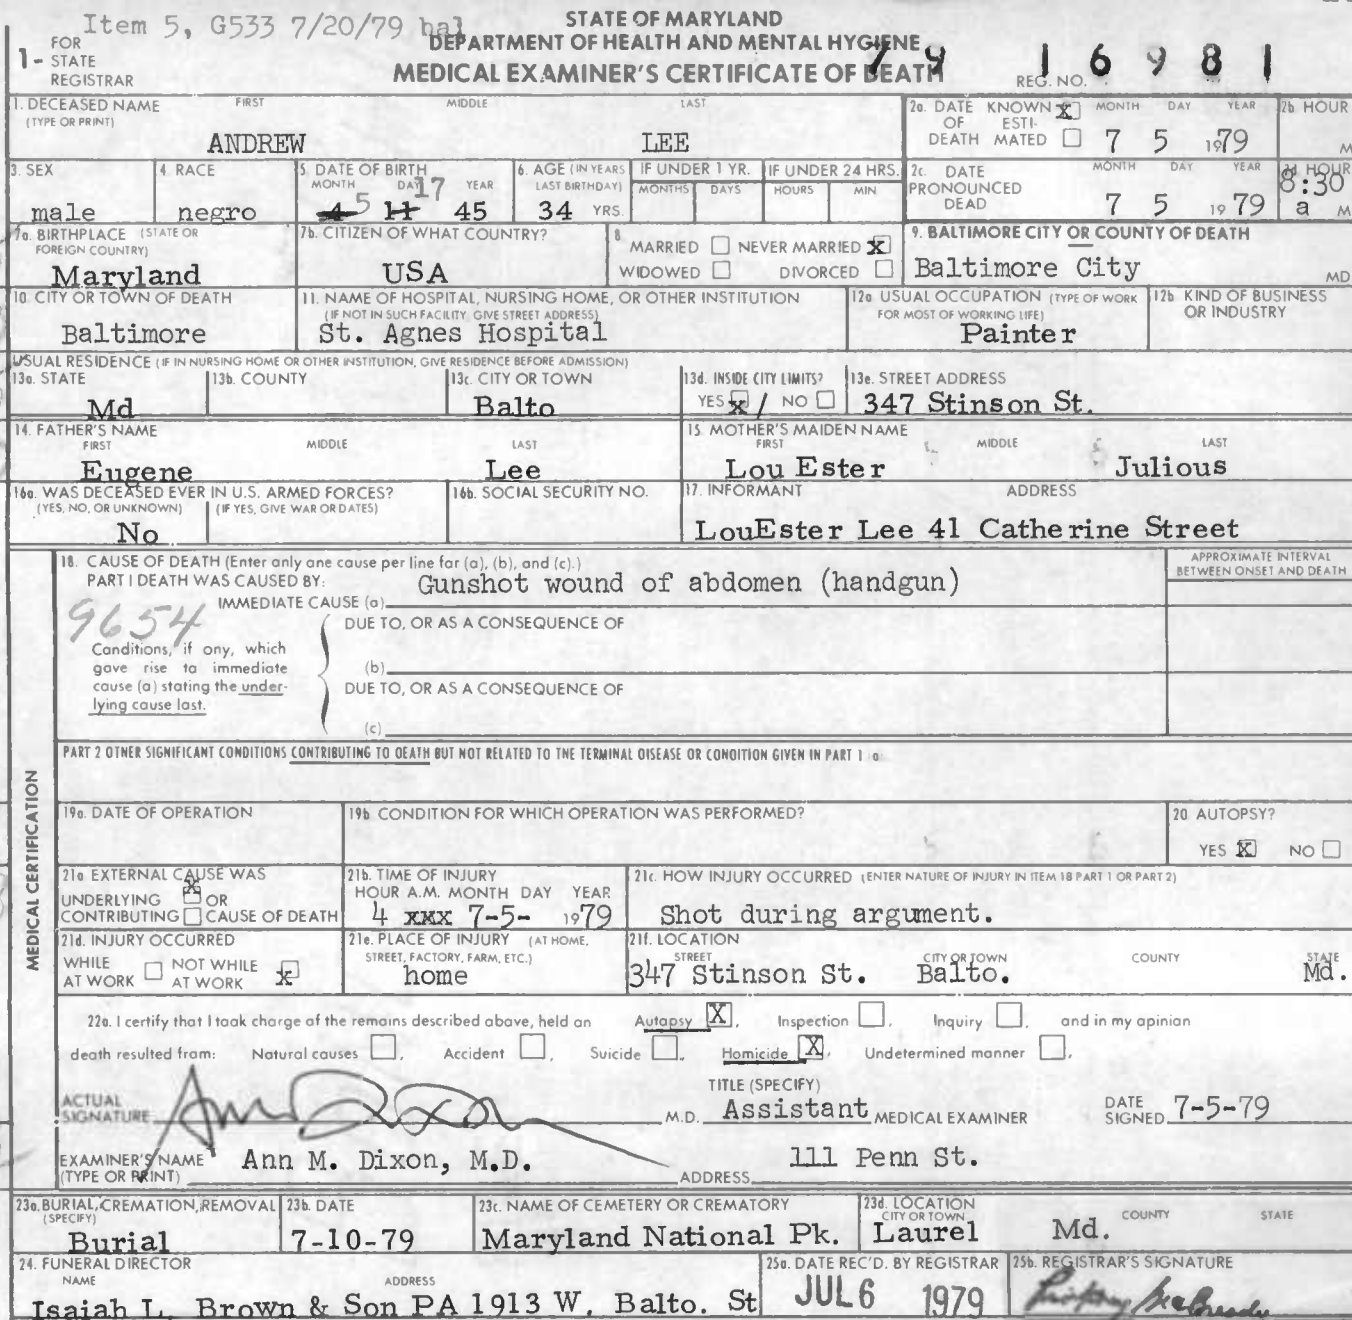 Item 5, G533 7/20/79 bal
STATE OF MARYLAND
DEPARTMENT OF HEALTH AND MENTAL HYGIENE
MEDICAL EXAMINER'S CERTIFICATE OF DEATH
1- FOR STATE REGISTRAR
REG. NO. 79 16981
1. DECEASED NAME (TYPE OR PRINT) FIRST MIDDLE LAST
ANDREW LEE
2a. DATE OF DEATH KNOWN X ESTIMATED MONTH DAY YEAR 7 5 1979
2b. HOUR M
3. SEX male
4. RACE negro
5. DATE OF BIRTH MONTH DAY YEAR 4 11 5 17 45
6. AGE (IN YEARS LAST BIRTHDAY) 34 YRS.
IF UNDER 1 YR. MONTHS DAYS
IF UNDER 24 HRS. HOURS MIN
2c. DATE PRONOUNCED DEAD MONTH DAY YEAR 7 5 1979
2d. HOUR 8:30 a M
7a. BIRTHPLACE (STATE OR FOREIGN COUNTRY) Maryland
7b. CITIZEN OF WHAT COUNTRY? USA
8. MARRIED NEVER MARRIED X WIDOWED DIVORCED
9. BALTIMORE CITY OR COUNTY OF DEATH Baltimore City MD
10. CITY OR TOWN OF DEATH Baltimore
11. NAME OF HOSPITAL, NURSING HOME, OR OTHER INSTITUTION (IF NOT IN SUCH FACILITY, GIVE STREET ADDRESS) St. Agnes Hospital
12a. USUAL OCCUPATION (TYPE OF WORK FOR MOST OF WORKING LIFE) Painter
12b. KIND OF BUSINESS OR INDUSTRY
USUAL RESIDENCE (IF IN NURSING HOME OR OTHER INSTITUTION, GIVE RESIDENCE BEFORE ADMISSION)
13a. STATE Md
13b. COUNTY
13c. CITY OR TOWN Balto
13d. INSIDE CITY LIMITS? YES x / NO
13e. STREET ADDRESS 347 Stinson St.
14. FATHER'S NAME FIRST MIDDLE LAST
Eugene Lee
15. MOTHER'S MAIDEN NAME FIRST MIDDLE LAST
Lou Ester Julious
16a. WAS DECEASED EVER IN U.S. ARMED FORCES? (YES, NO, OR UNKNOWN) (IF YES, GIVE WAR OR DATES) No
16b. SOCIAL SECURITY NO.
17. INFORMANT ADDRESS
LouEster Lee 41 Catherine Street
MEDICAL CERTIFICATION
18. CAUSE OF DEATH (Enter only one cause per line for (a), (b), and (c).)
PART I DEATH WAS CAUSED BY:
APPROXIMATE INTERVAL BETWEEN ONSET AND DEATH
IMMEDIATE CAUSE (a) Gunshot wound of abdomen (handgun)
9654
DUE TO, OR AS A CONSEQUENCE OF
Conditions, if any, which gave rise to immediate cause (a) stating the underlying cause last.
(b)
DUE TO, OR AS A CONSEQUENCE OF
(c)
PART 2 OTHER SIGNIFICANT CONDITIONS CONTRIBUTING TO DEATH BUT NOT RELATED TO THE TERMINAL DISEASE OR CONDITION GIVEN IN PART 1 a
19a. DATE OF OPERATION
19b. CONDITION FOR WHICH OPERATION WAS PERFORMED?
20. AUTOPSY? YES X NO
21a. EXTERNAL CAUSE WAS UNDERLYING X OR CONTRIBUTING CAUSE OF DEATH
21b. TIME OF INJURY HOUR A.M. MONTH DAY YEAR 4 xxx 7-5- 1979
21c. HOW INJURY OCCURRED (ENTER NATURE OF INJURY IN ITEM 18 PART 1 OR PART 2)
Shot during argument.
21d. INJURY OCCURRED WHILE AT WORK NOT WHILE AT WORK X
21e. PLACE OF INJURY (AT HOME, STREET, FACTORY, FARM, ETC.) home
21f. LOCATION STREET CITY OR TOWN COUNTY STATE
347 Stinson St. Balto. Md.
22a. I certify that I took charge of the remains described above, held an Autopsy X, Inspection, Inquiry, and in my opinion
death resulted from: Natural causes, Accident, Suicide, Homicide X, Undetermined manner,
ACTUAL SIGNATURE Ann Dixon M.D.
TITLE (SPECIFY) Assistant MEDICAL EXAMINER
DATE SIGNED 7-5-79
EXAMINER'S NAME (TYPE OR PRINT) Ann M. Dixon, M.D.
ADDRESS 111 Penn St.
23a. BURIAL, CREMATION, REMOVAL (SPECIFY) Burial
23b. DATE 7-10-79
23c. NAME OF CEMETERY OR CREMATORY Maryland National Pk.
23d. LOCATION CITY OR TOWN COUNTY STATE
Laurel Md.
24. FUNERAL DIRECTOR NAME ADDRESS
Isaiah L. Brown & Son PA 1913 W. Balto. St
25a. DATE REC'D. BY REGISTRAR JUL 6 1979
25b. REGISTRAR'S SIGNATURE